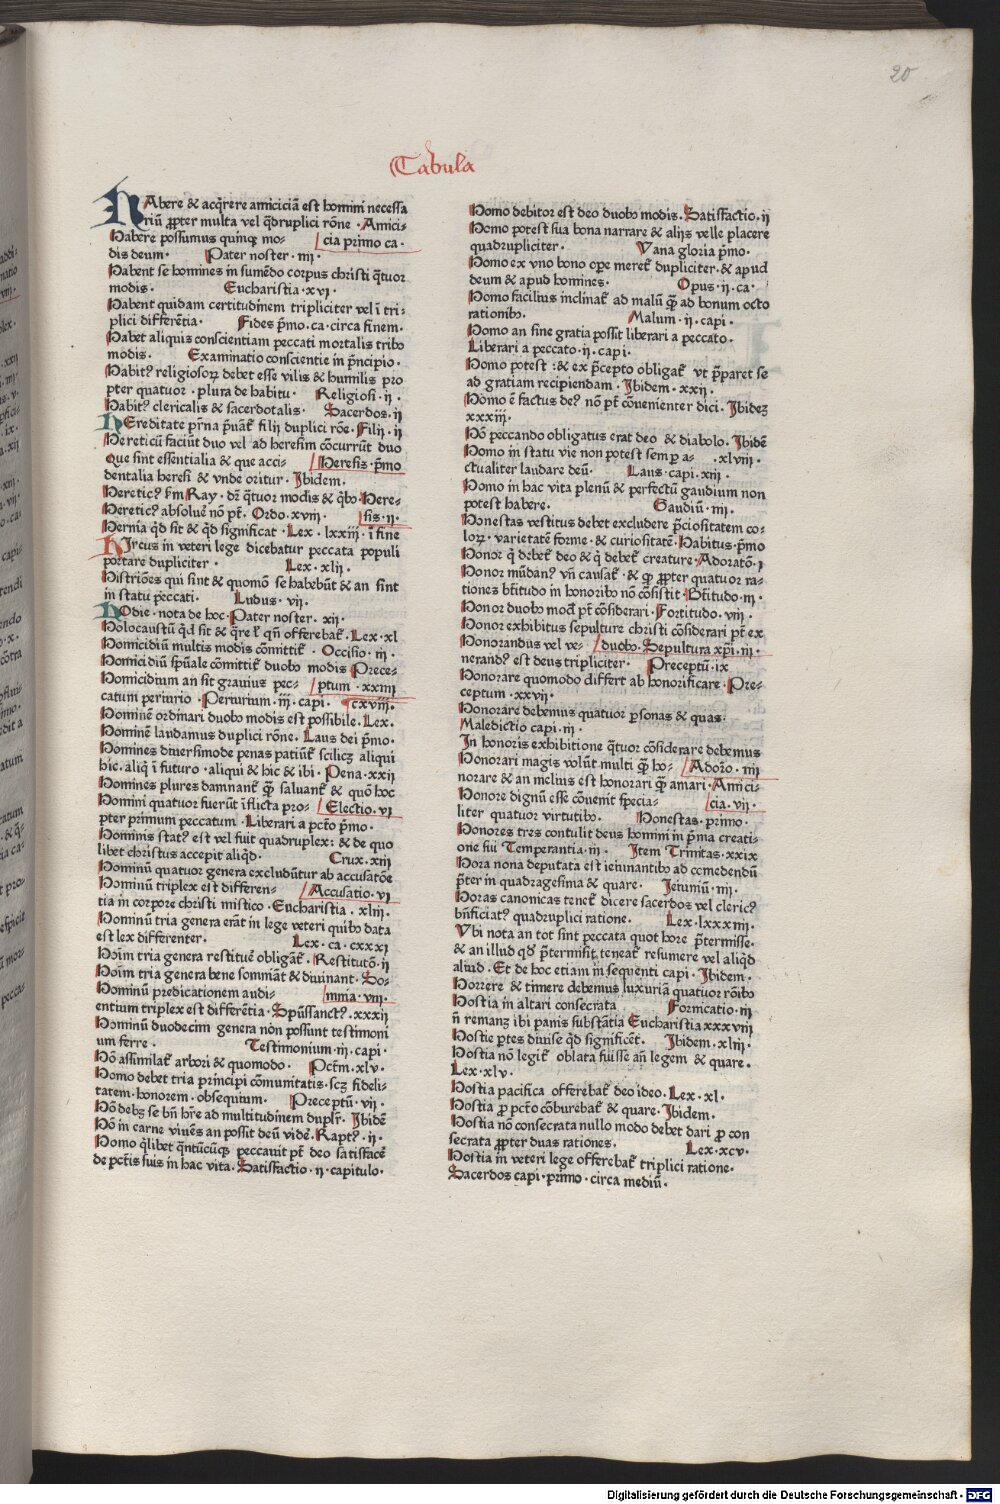 20
Tabula
HAbere & acq̄rere amiciciā est homini necessa
riū ꝓpter multa vel q̄druplici rōne · Amici-
Habere possumus quinqꝫ mo- cia primo ca ·
dis deum · Pater noster · iiij ·
Habent se homines in sumēdo corpus christi q̄tuor
modis · Eucharistia · xvj ·
Habent quidam certitudinem tripliciter vel ī tri-
plici differētia · Fides p̄mo · ca · circa finem ·
Habet aliquis conscientiam peccati mortalis tribꝰ
modis · Examinatio conscientie in p̄ncipio ·
Habitꝰ religiosoꝝ debet esse vilis & humilis pro
pter quatuor · plura de habitu · Religiosi · ij ·
Habitꝰ clericalis & sacerdotalis · Sacerdos · ij
HEreditate p̄rna p̄uāt᷑ filij duplici rōe · Filij · ij
Hereticū faciūt duo vel ad heresim cōcurrūt duo
que sint essentialia & que acci- Heresis · p̄mo
dentalia heresi & vnde oritur · Ibidem ·
Hereticꝰ ẜm Ray · dr̄ q̄tuor modis & q̄bꝰ · Here-
Hereticꝰ absoluē nō pt̄ · Ordo · xviij · sis · ij ·
Hernia q̄d sit & q̄d significat · Lex · lxxiij · ī fine
HIrcus in veteri lege dicebatur peccata populi
portare dupliciter · Lex · xlij ·
Histriōes qui sint & quomō se habebūt & an sint
in statu peccati · Ludus · vij ·
HOdie · nota de hoc · Pater noster · xij ·
Holocaustū q̄d sit & q̄re & qn̄ offerebat᷑ · Lex · xl
Homicidiū multis modis cōmittit᷑ · Occisio · iij ·
Homicidiū sp̄uale cōmittit᷑ duobꝰ modis Prece-
Homicidium an sit grauius pec- ptum · xxiiij
catum periurio · Periurium · iij · capi · cxviij ·
Hominē ordinari duobꝰ modis est possibile · Lex ·
Hominē laudamus duplici rōne · Laus dei p̄mo ·
Homines diuersimode penas patiūt᷑ scilicꝫ aliqui
hic · aliq̄ ī futuro · aliqui & hic & ibi · Pena · xxij
Homines plures damnant᷑ q̄ꝫ saluant᷑ & quō hoc
Homini quatuor fuerūt īflicta pro- Electio · vj
pter primum peccatum · Liberari a pctō p̄mo ·
Hominis statꝰ est vel fuit quadruplex: & de quo
libet christus accepit aliq̄d · Crux · xiij
Hominū quatuor genera excludūtur ab accusatōe
Hominū triplex est differen- Accusatio · vj
tia in corpore christi mistico · Eucharistia · xliij ·
Hominū tria genera erāt in lege veteri quibꝰ data
est lex differenter · Lex · ca · cxxxj
Hoīm tria genera restituē obligāt᷑ · Restitutō · ij
Hoīm tria genera bene somniāt & diuinant · So-
Hominū predicationem audi- mnia · viij ·
entium triplex est differētia · Spūssanctꝰ · xxxij
Hominū duodecim genera nōn possunt testimoni
um ferre · Testimonium · iij · capi ·
Hō assimilat᷑ arbori & quomodo · Pctm̄ · xlv ·
Homo debet tria principi cōmunitatis · scꝫ fideli-
tatem · honorem · obsequium · Preceptū · vij ·
Hō debꝫ se bn̄ hr̄e ad multitudinem duplr̄ · Ibidē
Hō in carne viuēs an possit deū vidē · Raptꝰ · ij ·
Homo q̄libet q̄ntūcūqꝫ peccauit pt̄ deo satisfacē
de pctīs suis in hac vita · Satisfactio · ij · capitulo ·
Homo debitor est deo duobꝰ modis · Satisfactio · ij
Homo potest sua bona narrare & alijs velle placere
quadrupliciter · Vana gloria p̄mo ·
Homo ex vno bono ope meret᷑ dupliciter · & apud
deum & apud homines · Opus · ij · ca ·
Homo facilius inclinat᷑ ad malū q̄ꝫ ad bonum octo
rationibꝰ · Malum · ij · capi ·
Homo an sine gratia possit liberari a peccato ·
Liberari a peccato · ij · capi ·
Homo potest : & ex p̄cepto obligat᷑ vt p̄paret se
ad gratiam recipiendam · Ibidem · xxij ·
Homo ē factus deꝰ nō pt̄ cōuenienter dici · Ibideꝫ
xxxiij ·
Hō peccando obligatus erat deo & diabolo · Ibidē
Homo in statu vie non potest semꝑ a- · xlviij ·
ctualiter laudare deū · Laus · capi · xij ·
Homo in hac vita plenū & perfectū gaudium non
potest habere · Gaudiū · iij ·
Honestas vestitus debet excludere p̄ciositatem co-
loꝝ · varietatē forme · & curiositatē · Habitus · p̄mo
Honor q̄ debet᷑ deo & q̄ debet᷑ creature · Adoratō · j
Honor mūdanꝰ vn̄ causat᷑ · & qꝙ ꝓpter quatuor ra-
tiones bt̄itudo in honoribꝰ nō cōsistit · Bt̄itudo · iij ·
Honor duobꝰ mod̄ pt̄ cōsiderari · Fortitudo · viij ·
Honor exhibitus sepulture christi cōsiderari pt̄ ex
Honorandus vel ve- duobꝰ · Sepultura xp̄i · iij ·
nerandꝰ est deus tripliciter · Preceptū · ix
Honorare quomodo differt ab honorificare · Pre-
ceptum · xxvij ·
Honorare debemus quatuor ꝑsonas & quas ·
Maledictio capi · iij ·
In honoris exhibitione q̄tuor cōsiderare debemus
Honorari magis volūt multi q̄ꝫ ho- Adoro · iiij
norare & an melius est honorari q̄ꝫ amari · Amici-
Honore dignū esse cōuenit specia- cia · vij ·
liter quatuor virtutibꝰ · Honestas · primo ·
Honores tres contulit deus homini in p̄ma creati-
one sui Temperantia · iij · Item Trinitas · xxix
Hora nona deputata est ieiunantibꝰ ad comedendū
p̄ter in quadragesima & quare · Ieiuniū · iiij ·
Horas canonicas tenet᷑ dicere sacerdos vel clericꝰ
bn̄ficiatꝰ quadruplici ratione · Lex · lxxxiiij ·
Vbi nota an tot sint peccata quot hore p̄termisse ·
& an illud qd̄ p̄termisit teneat᷑ resumere vel aliq̄d
aliud · Et de hoc etiam in sequenti capi · Ibidem ·
Horrere & timere debemus luxuriā quatuor rōibꝰ
Hostia in altari consecrata Fornicatio · iij
n̄ remanꝫ ibi panis substātia Eucharistia xxxvij
Hostie ꝑtes diuise qd̄ significēt · Ibidem · xliij ·
Hostia nō legit᷑ oblata fuisse an̄ legem & quare ·
Lex · xlv ·
Hostia pacifica offerebat᷑ deo ideo · Lex · xl ·
Hostia ꝓ pctō cōburebat᷑ & quare · Ibidem ·
Hostia nō consecrata nullo modo debet dari ꝓ con
secrata ꝓpter duas rationes · Lex · xcv ·
Hostia in veteri lege offerebat᷑ triplici ratione ·
Sacerdos capi · primo · circa mediū ·
Digitalisierung gefördert durch die Deutsche Forschungsgemeinschaft - DFG